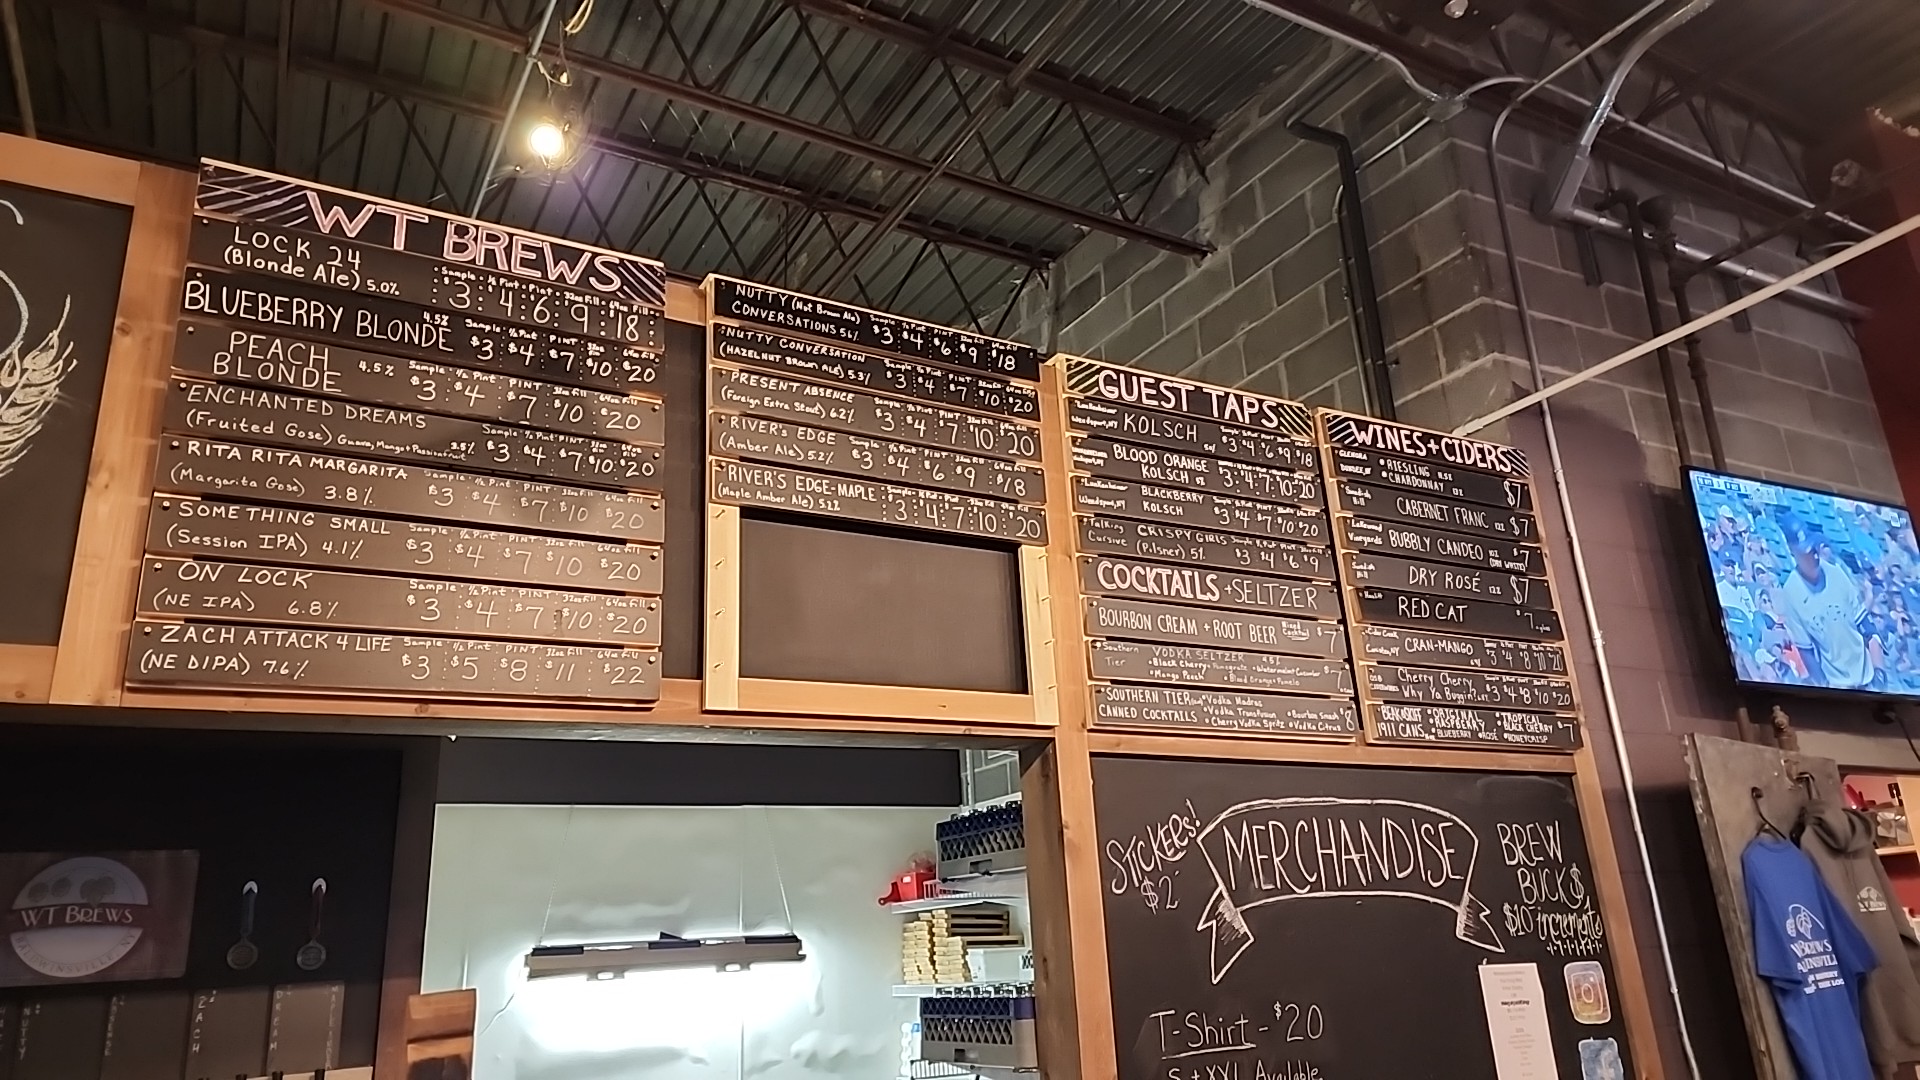 WT BREWS
LOCK 24
(Blonde Ale) 5.0%
Sample · ½ Pint · PINT · 32oz Fill · 64oz Fill
$3 : 4 : 6 : 9 : $18 :
BLUEBERRY BLONDE 4.5%
Sample ½ Pint PINT
$3 $4 $7 $10 $20
PEACH BLONDE 4.5%
Sample ½ Pint PINT
$3 $4 $7 $10 $20
ENCHANTED DREAMS
(Fruited Gose) Guava, Mango + Passionfruit
Sample ½ Pint PINT
$3 $4 $7 $10 $20
RITA RITA MARGARITA
(Margarita Gose) 3.8%
Sample ½ Pint PINT 32oz Fill 64oz Fill
$3 $4 $7 $10 $20
SOMETHING SMALL
(Session IPA) 4.1%
Sample ½ Pint PINT 32oz Fill 64oz Fill
$3 $4 $7 $10 $20
ON LOCK
(NE IPA) 6.8%
Sample ½ Pint PINT 32oz Fill 64oz Fill
$3 $4 $7 $10 $20
ZACH ATTACK 4 LIFE
(NE DIPA) 7.6%
Sample ½ Pint PINT 32oz Fill 64oz Fill
$3 $5 $8 $11 $22
NUTTY (Not Brown Ale)
CONVERSATIONS 5.6%
Sample ½ Pint PINT
$3 $4 $6 $9 $18
NUTTY CONVERSATION
(HAZELNUT BROWN ALE) 5.3%
$3 $4 $7 $10 $20
PRESENT ABSENCE
(Foreign Extra Stout) 6.2%
$3 $4 $7 $10 $20
RIVER'S EDGE
(Amber Ale) 5.2%
$3 $4 $6 $9 $18
RIVER'S EDGE-MAPLE
(Maple Amber Ale) 5.2%
$3 $4 $7 $10 $20
GUEST TAPS
KOLSCH
$3 $4 $6 $9 $18
BLOOD ORANGE
KOLSCH
$3 $4 $7 $10 $20
Weedsport, NY
BLACKBERRY
KOLSCH
$3 $4 $7 $10 $20
Talking
Cursive
CRISPY GIRLS
(Pilsner) 5%
$3 $4 $6 $9
COCKTAILS + SELTZER
BOURBON CREAM + ROOT BEER Mixed Cocktail $7
Southern
Tier
VODKA SELTZER 4.5%
• Black Cherry • Pomegranate • Watermelon Cucumber
• Mango Peach • Blood Orange + Pomelo
$7
SOUTHERN TIER
CANNED COCKTAILS
• Vodka Madras
• Vodka Transfusion • Bourbon Smash
• Cherry Vodka Spritz • Vodka Citrus
$8
WINES + CIDERS
GLENORA
DUNDEE, NY
• RIESLING
• CHARDONNAY 12%
$7
Swedish
Hill
CABERNET FRANC 12% $7
Lakewood
Vineyards
BUBBLY CANDEO
(DRY WHITE)
$7
Swedish
Hill
DRY ROSÉ 12% $7
RED CAT $7
CRAN-MANGO
$3 $4 $8 $10 $20
Cherry Cherry
Why Ya Buggin?
$3 $4 $8 $10 $20
BEAK & SKIFF
1911 CANS
• ORIGINAL • TROPICAL
• RASPBERRY • BLACK CHERRY
• BLUEBERRY • ROSÉ • HONEYCRISP
$7
STICKERS!
$2
MERCHANDISE
BREW
BUCK$
$10 increments
T-Shirt - $20
S → XXL Available
WT BREWS
BALDWINSVILLE, NY
NUTTY
ZACH